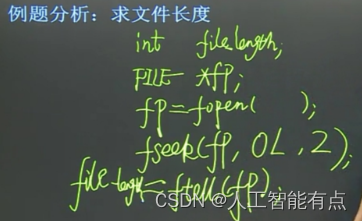 例题分析：求文件长度
int file.length;
FILE *fp;
fp=fopen( );
fseek(fp, 0L, 2);
file-length=ftell(fp);
CSDN @人工智能有点